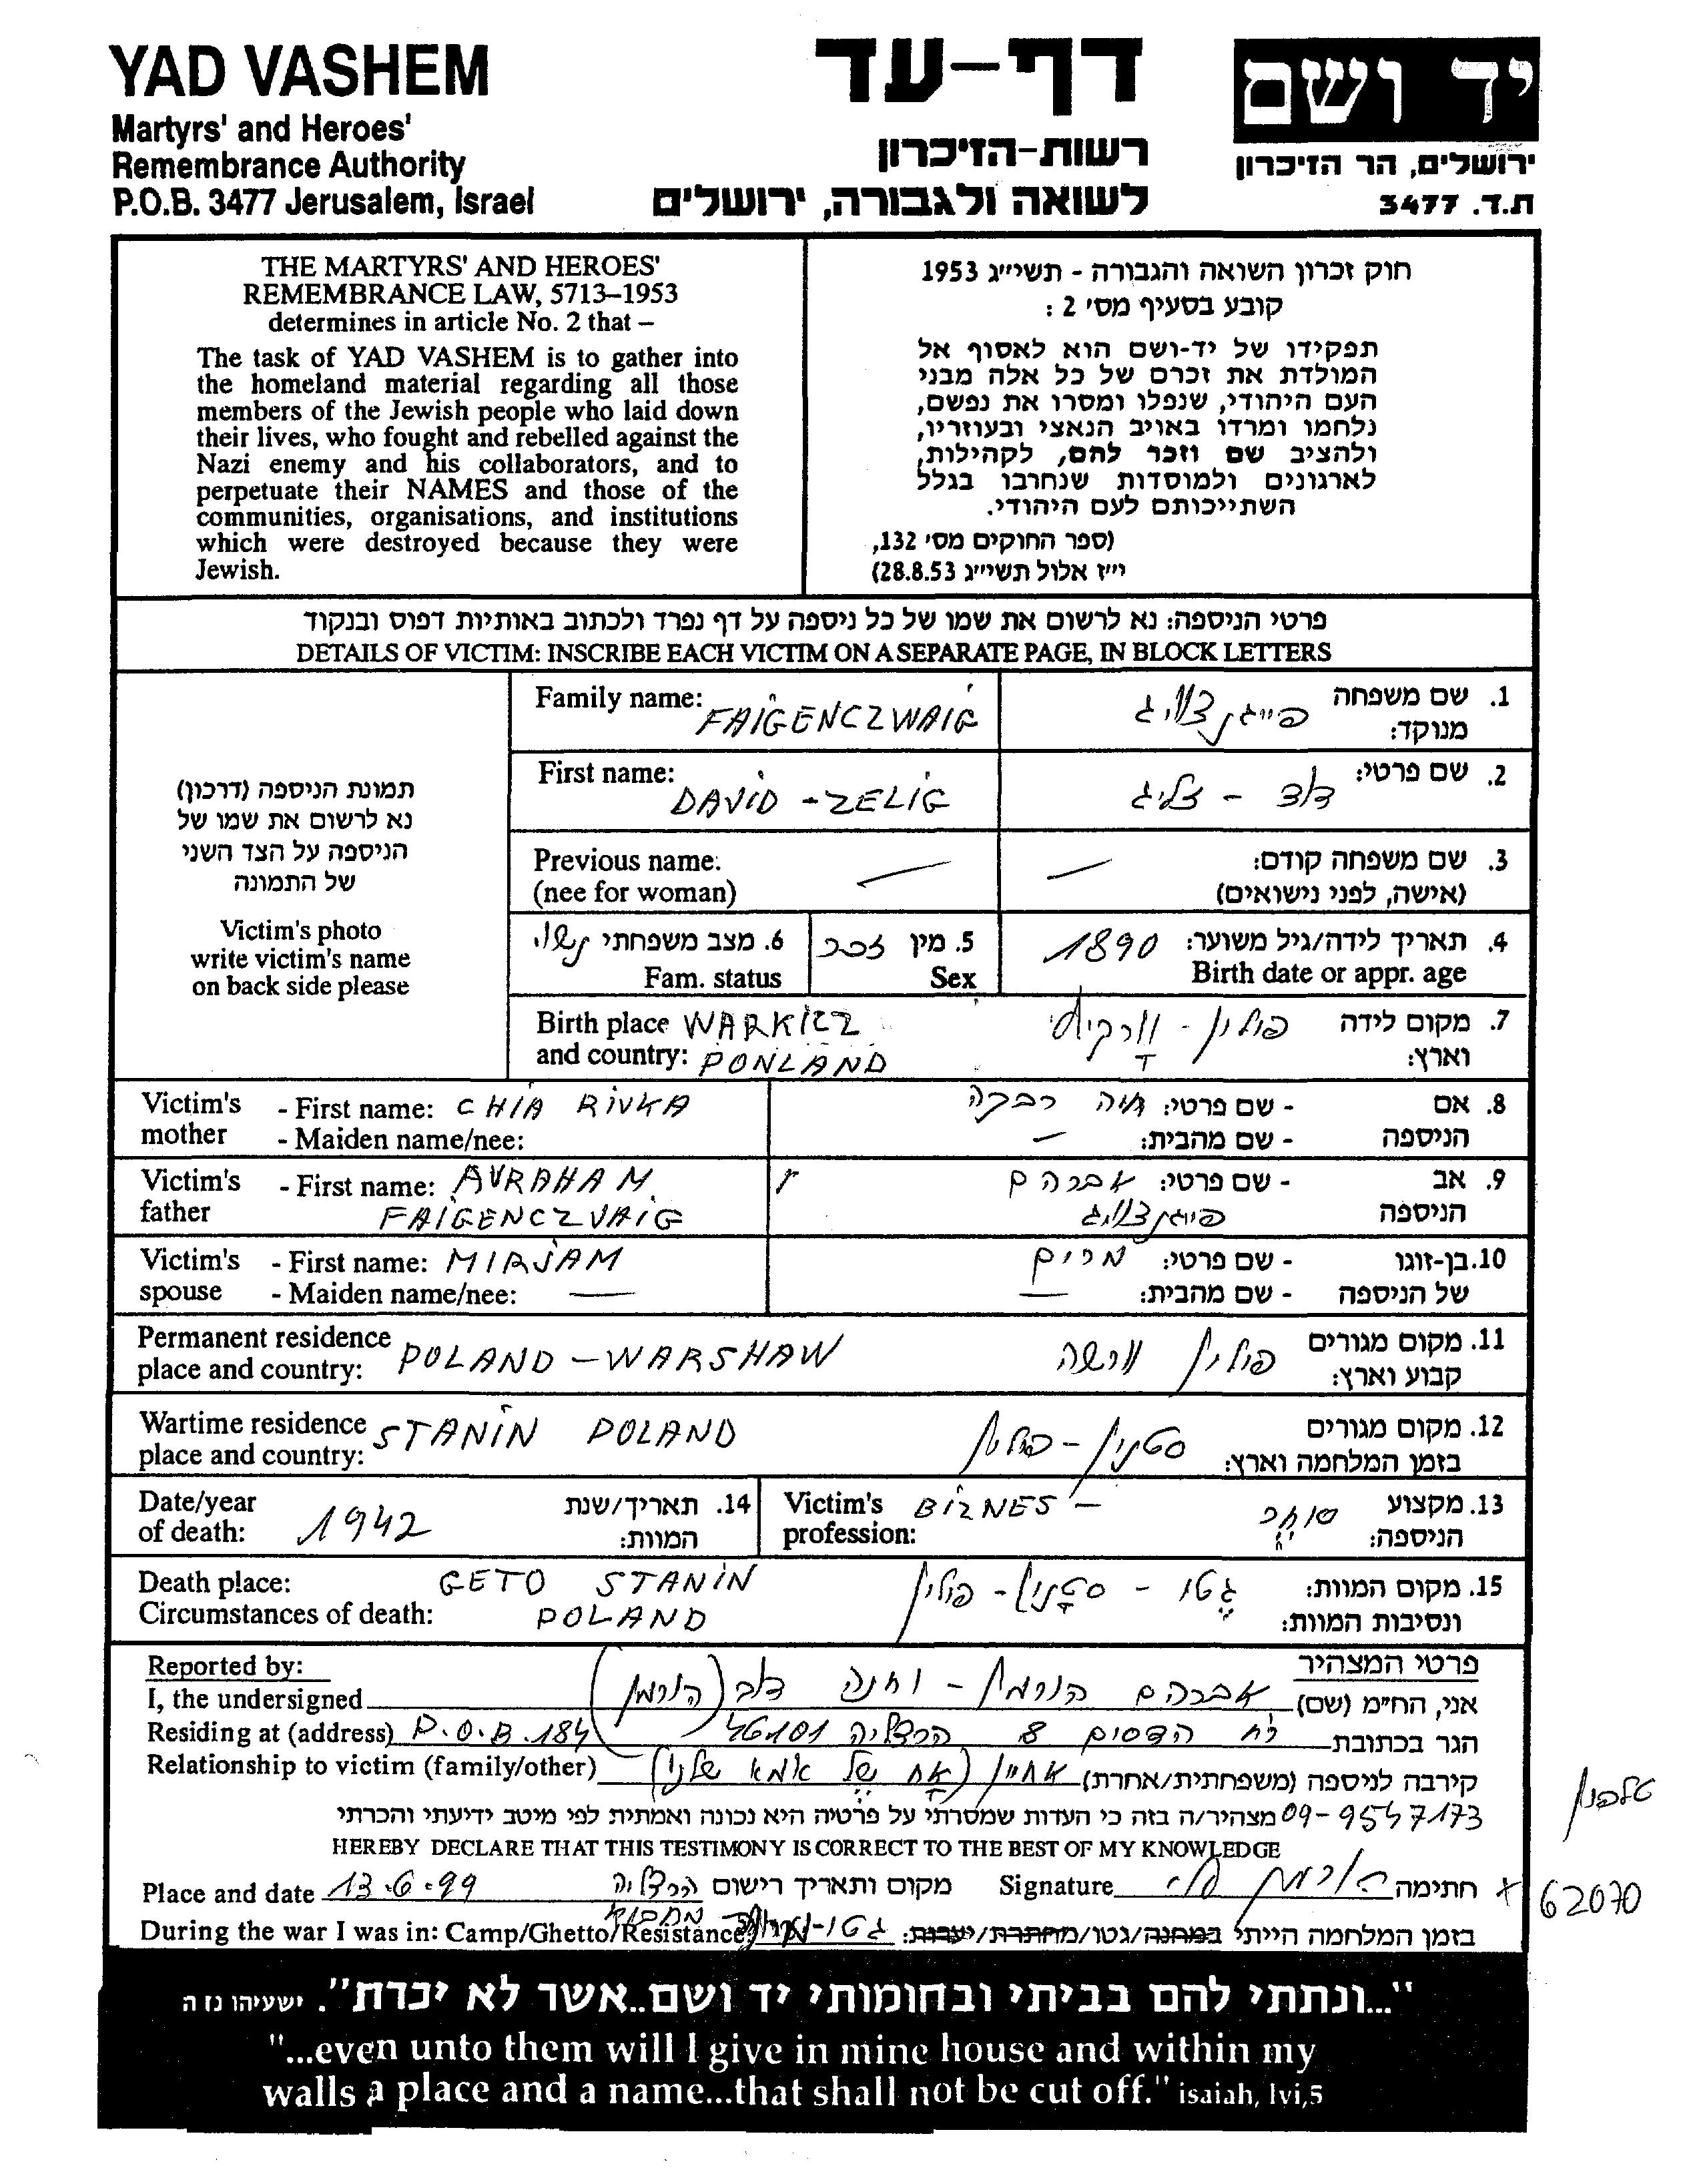 YAD VASHEM
Martyrs' and Heroes'
Remembrance Authority
P.O.B. 3477 Jerusalem, Israel
דף-עד
רשות-הזיכרון
לשואה ולגבורה, ירושלים
יד ושם
ירושלים, הר הזיכרון
ת.ד. 3477
THE MARTYRS' AND HEROES'
REMEMBRANCE LAW, 5713–1953
determines in article No. 2 that –
The task of YAD VASHEM is to gather into
the homeland material regarding all those
members of the Jewish people who laid down
their lives, who fought and rebelled against the
Nazi enemy and his collaborators, and to
perpetuate their NAMES and those of the
communities, organisations, and institutions
which were destroyed because they were
Jewish.
חוק זכרון השואה והגבורה - תשי״ג 1953
קובע בסעיף מס' 2 :
תפקידו של יד-ושם הוא לאסוף אל
המולדת את זכרם של כל אלה מבני
העם היהודי, שנפלו ומסרו את נפשם,
נלחמו ומרדו באויב הנאצי ובעוזריו,
ולהציב שם וזכר להם, לקהילות,
לארגונים ולמוסדות שנחרבו בגלל
השתייכותם לעם היהודי.
(ספר החוקים מס' 132,
י״ז אלול תשי״ג 28.8.53)
פרטי הניספה: נא לרשום את שמו של כל ניספה על דף נפרד ולכתוב באותיות דפוס ובנקוד
DETAILS OF VICTIM: INSCRIBE EACH VICTIM ON A SEPARATE PAGE, IN BLOCK LETTERS
תמונת הניספה (דרכון)
נא לרשום את שמו של
הניספה על הצד השני
של התמונה
Victim's photo
write victim's name
on back side please
Family name: FAIGENCZWAIG
1. שם משפחה פייגנצווייג
מנוקד:
First name: DAVID - ZELIG
2. שם פרטי: דוד - זליג
Previous name: —
(nee for woman)
3. שם משפחה קודם: —
(אישה, לפני נישואים)
4. תאריך לידה/גיל משוער: 1890
Birth date or appr. age
5. מין זכר
Sex
6. מצב משפחתי נשוי
Fam. status
Birth place WARKICZ
and country: PONLAND
7. מקום לידה פולין -
וארץ:
Victim's - First name: CHIA RIVKA
mother - Maiden name/nee:
8. אם - שם פרטי: חיה רבקה
הניספה - שם מהבית: —
Victim's - First name: AVRAHAM
father FAIGENCZVAIG
9. אב - שם פרטי: אברהם
הניספה פייגנצווייג
Victim's - First name: MIRJAM
spouse - Maiden name/nee: —
10. בן-זוגו - שם פרטי: מרים
של הניספה - שם מהבית: —
Permanent residence
place and country: POLAND - WARSHAW
11. מקום מגורים פולין וורשה
קבוע וארץ:
Wartime residence STANIN POLAND
place and country:
12. מקום מגורים סטנין - פולין
בזמן המלחמה וארץ:
Date/year
of death: 1942
14. תאריך/שנת
המוות:
Victim's BIZNES -
profession:
13. מקצוע סוחר
הניספה:
Death place: GETO STANIN
Circumstances of death: POLAND
15. מקום המוות: גטו - סטנין - פולין
ונסיבות המוות:
Reported by:
פרטי המצהיר
I, the undersigned
אני, הח״מ (שם) אברהם הורמן - וחנה לב (הורמן)
Residing at (address) P.O.B. 184
הגר בכתובת רח הדסים 8 הרצליה 46101
Relationship to victim (family/other)
קירבה לניספה (משפחתית/אחרת) אחיין (אח של אמא שלנו)
09-9547173 מצהיר/ה בזה כי העדות שמסרתי על פרטיה היא נכונה ואמתית לפי מיטב ידיעתי והכרתי
טלפון
HEREBY DECLARE THAT THIS TESTIMONY IS CORRECT TO THE BEST OF MY KNOWLEDGE
Place and date 13.6.99
מקום ותאריך רישום הרצליה
Signature
חתימה
x 62070
During the war I was in: Camp/Ghetto/Resistance
בזמן המלחמה הייתי במחנה/גטו/מחתרת/יערות: גטו-
"...ונתתי להם בביתי ובחומותי יד ושם..אשר לא יכרת". ישעיהו נו ה
"...even unto them will I give in mine house and within my
walls a place and a name...that shall not be cut off." isaiah, lvi,5